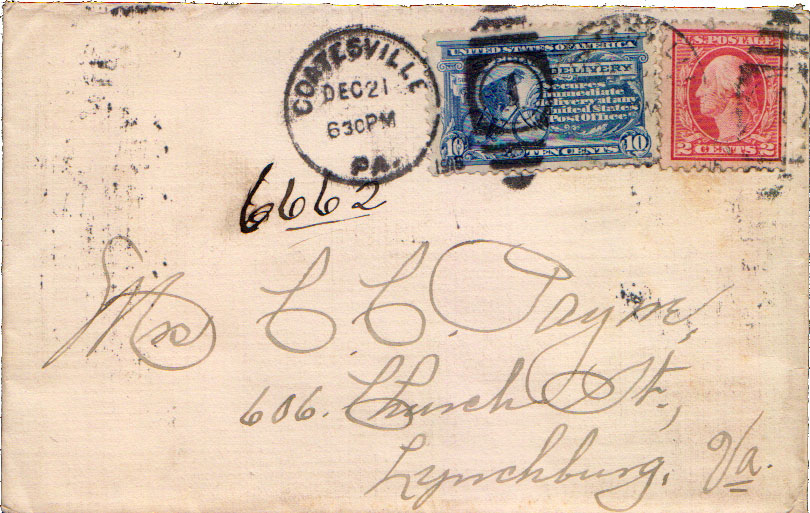 COATESVILLE
DEC 21
630PM
PA.
UNITED STATES OF AMERICA
DELIVERY
Secures
immediate
delivery at any
United States
Post Office
10 TEN CENTS 10
U.S. POSTAGE
2 CENTS 2
6662
C. C. Payne,
606. Church St.,
Lynchburg, Va.